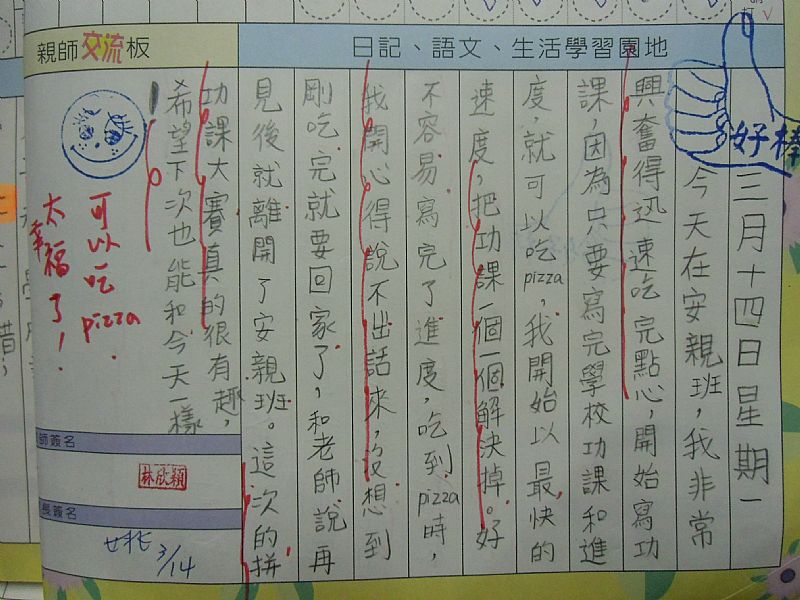 親師交流板
日記、語文、生活學習園地
好棒
三月十四日星期一
今天在安親班,我非常
興奮得迅速吃完點心,開始寫功
課,因為只要寫完學校功課和進
度,就可以吃pizza,我開始以最快的
速度,把功課一個一個解決掉。好
不容易寫完了進度,吃到pizza時,
我開心得說不出話來,沒想到
剛吃完就要回家了,和老師說再
見後就離開了安親班。這次的拼
功課大賽真的很有趣,
希望下次也能和今天一樣
可以吃pizza.
太幸福了!
師簽名
林欣穎
長簽名
3/14